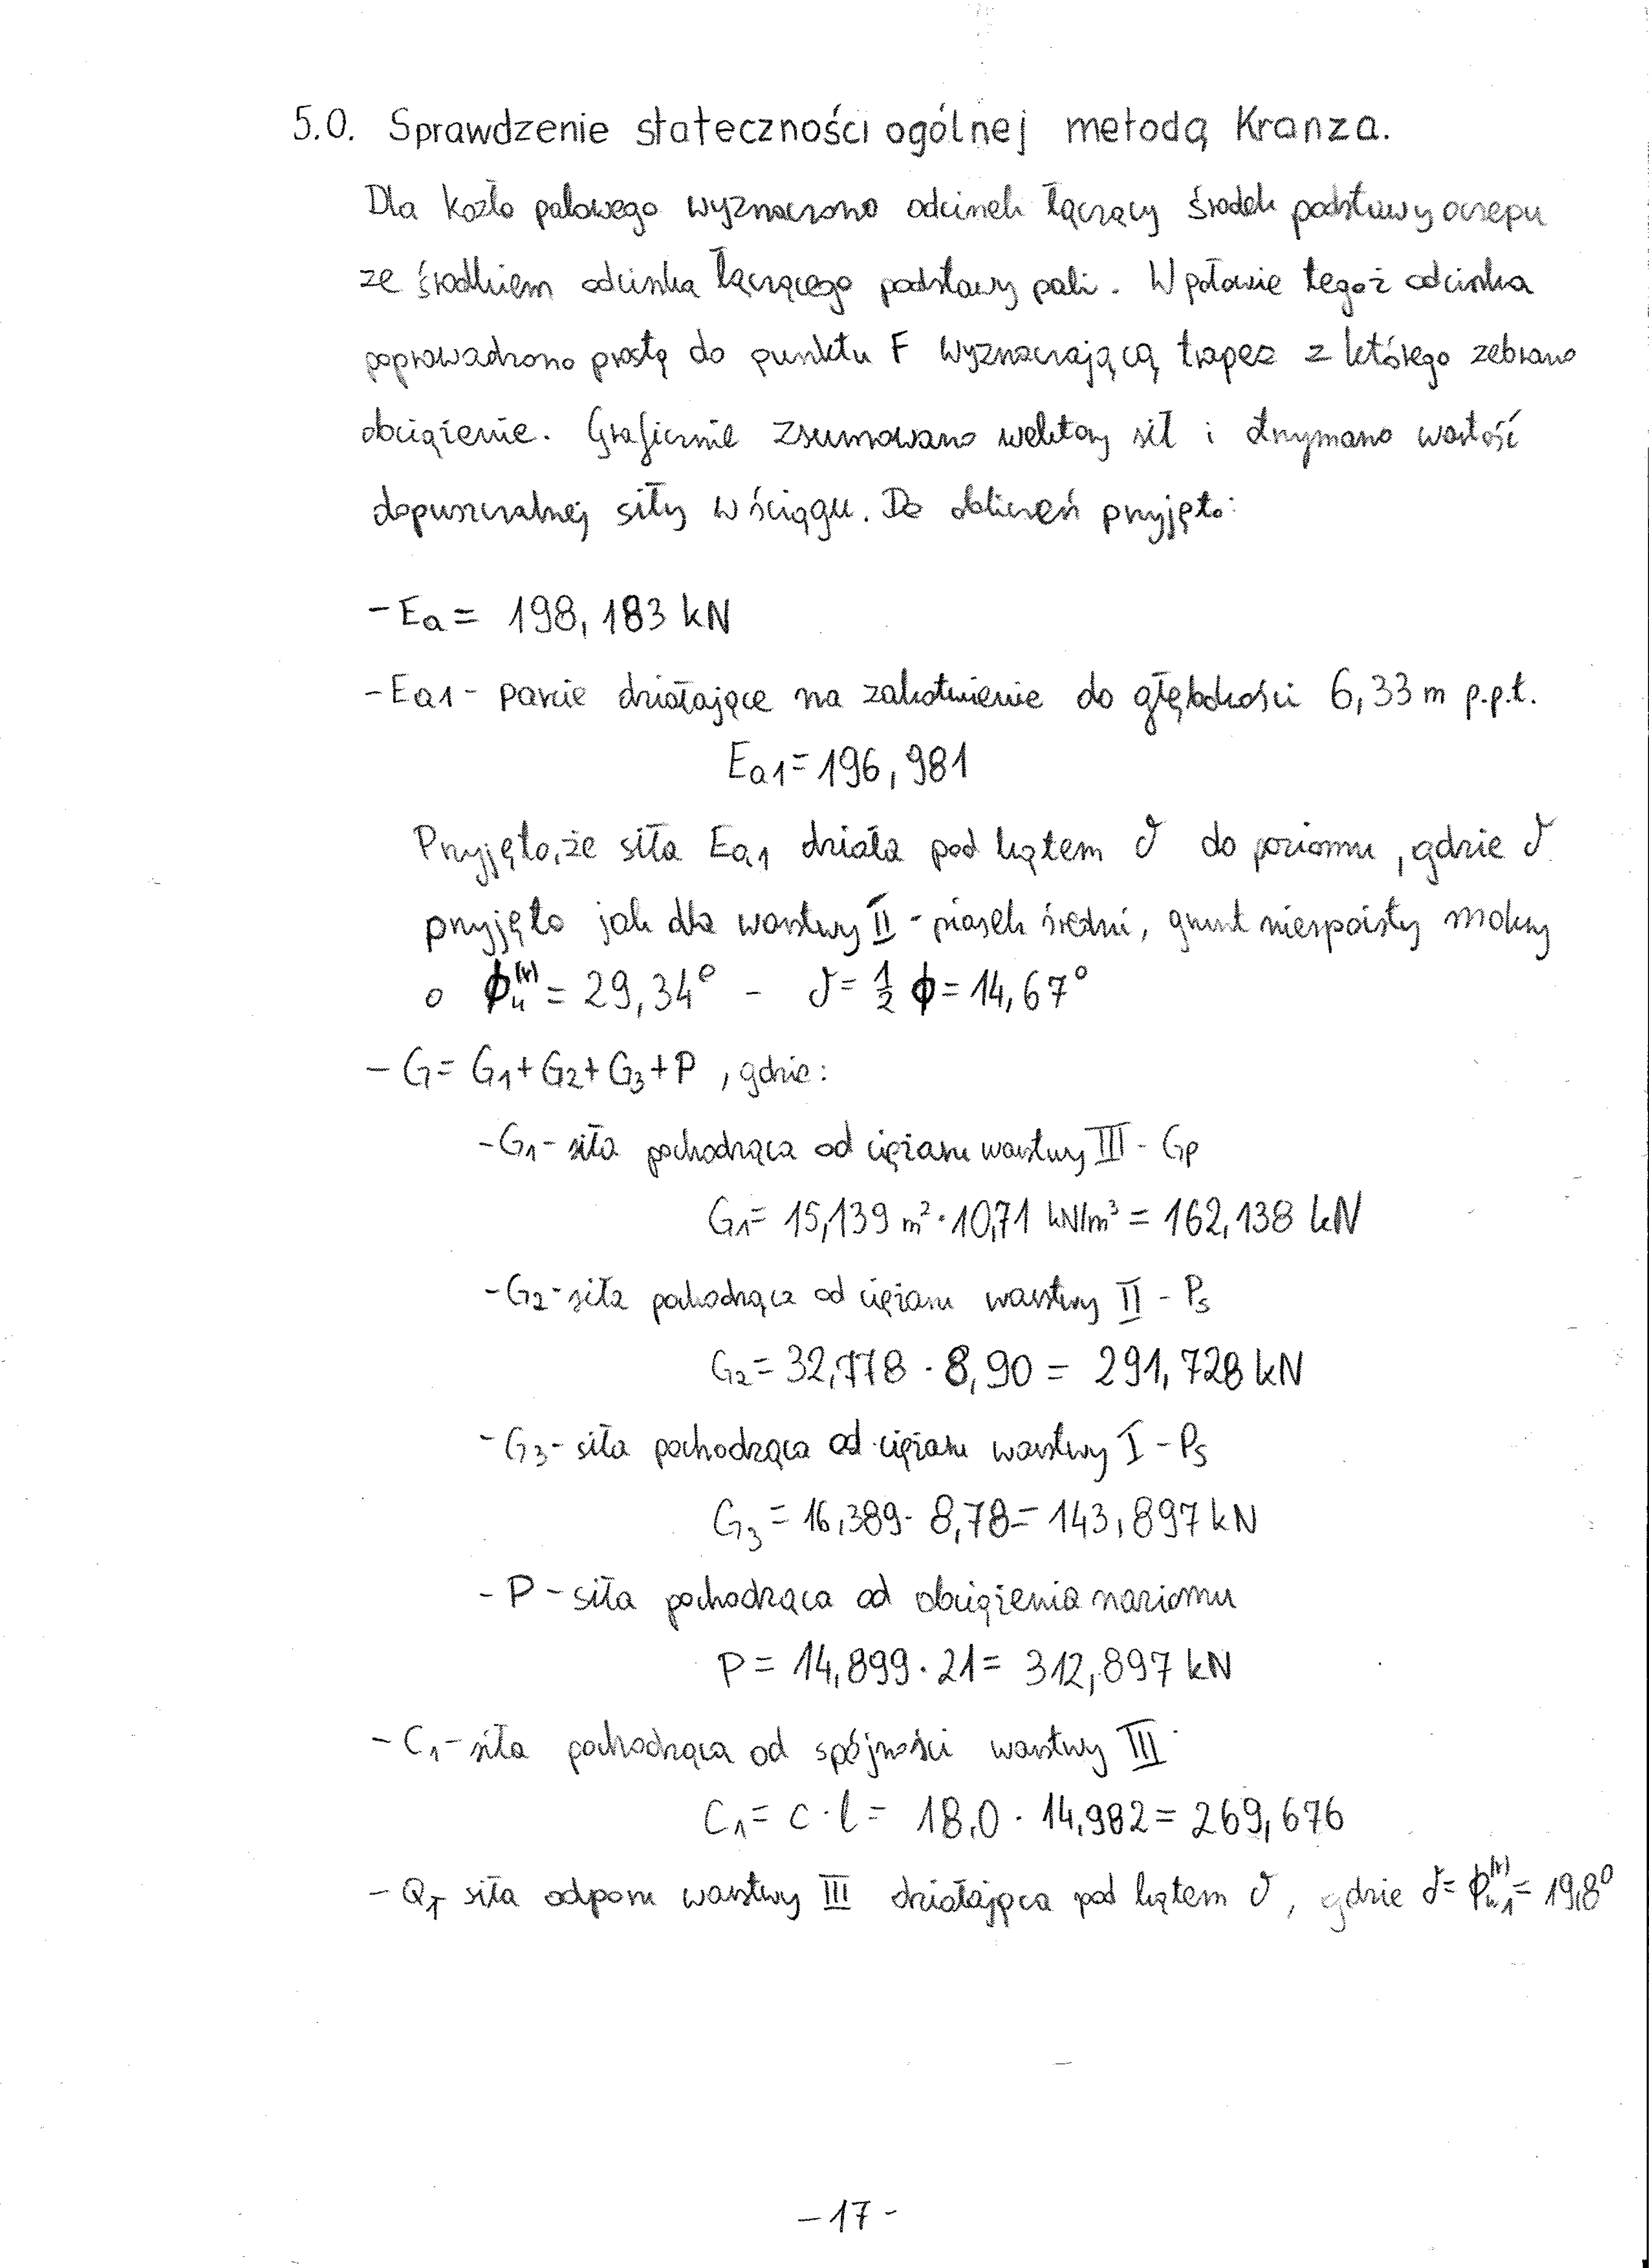 5.0. Sprawdzenie stateczności ogólnej metodą Kranza.
Dla kozła palowego wyznaczono odcinek łączący środek podstawy oczepu
ze środkiem odcinka łączącego podstawy pali. W połowie tegoż odcinka
poprowadzono prostą do punktu F wyznaczającą trapez z którego zebrano
obciążenie. Graficznie zsumowano wektory sił i otrzymano wartość
dopuszczalnej siły w ściągu. Do obliczeń przyjęto:
- Ea = 198,183 kN
- Ea1 - parcie działające na zakotwienie do głębokości 6,33 m p.p.t.
Ea1 = 196,981
Przyjęto, że siła Ea1 działa pod kątem δ do poziomu, gdzie δ
przyjęto jak dla warstwy II - piasek średni, grunt niespoisty mokry
o ϕu(r) = 29,34° - δ = 1/2 ϕ = 14,67°
- G = G1 + G2 + G3 + P, gdzie:
- G1 - siła pochodząca od ciężaru warstwy III - Gp
G1 = 15,139 m² · 10,71 kN/m³ = 162,138 kN
- G2 - siła pochodząca od ciężaru warstwy II - Ps
G2 = 32,778 · 8,90 = 291,728 kN
- G3 - siła pochodząca od ciężaru warstwy I - Ps
G3 = 16,389 · 8,78 = 143,897 kN
- P - siła pochodząca od obciążenia naziomu
P = 14,899 · 21 = 312,897 kN
- C1 - siła pochodząca od spójności warstwy III
C1 = c · l = 18,0 · 14,982 = 269,676
- QT siła odporu warstwy III działająca pod kątem δ, gdzie δ = ϕu1(r) = 19,8°
- 17 -